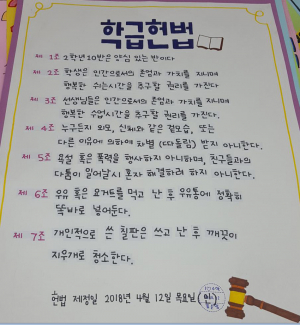 학급헌법
제 1조 2학년 10반은 양심 있는 반이다
제 2조 학생은 인간으로서의 존엄과 가치를 지니며
행복한 쉬는시간을 추구할 권리를 가진다.
제 3조 선생님들은 인간으로서의 존엄과 가치를 지니며
행복한 수업시간을 추구할 권리를 가진다.
제 4조 누구든지 외모, 신체와 같은 겉모습, 또는
다른 이유에 의하여 차별 (따돌림) 받지 아니한다.
제 5조 욕설 혹은 폭력을 행사하지 아니하며, 친구들과의
다툼이 일어났을시 혼자 해결하려 하지 아니한다.
제 6조 우유 혹은 요거트를 먹고 난 후 우유통에 정확히
똑바로 넣어둔다.
제 7조 개인적으로 쓴 칠판은 쓰고 난 후 깨끗이
지우개로 청소한다.
헌법 제정일 2018년 4월 12일 목요일